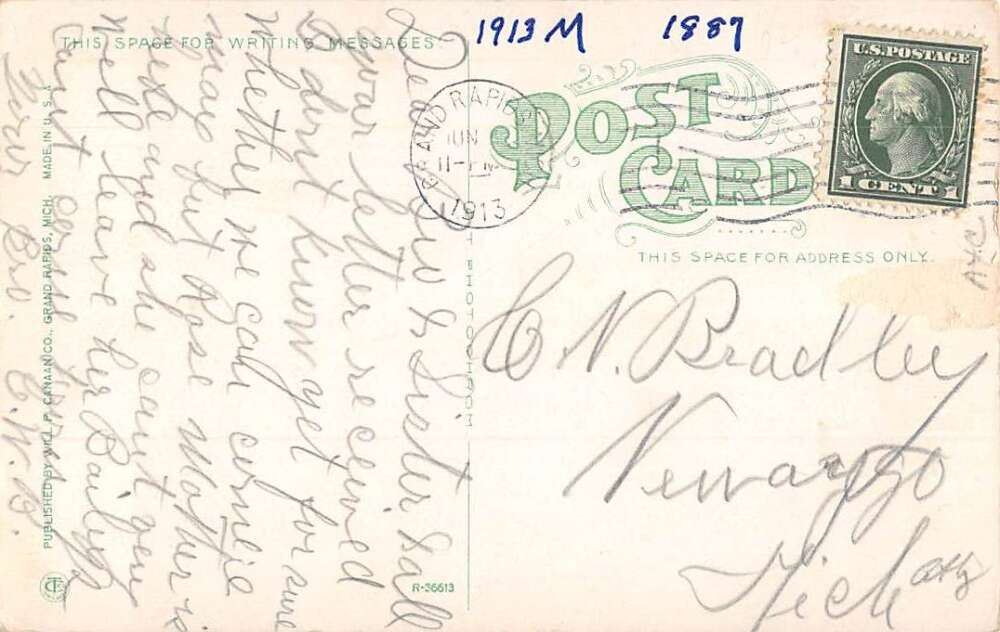 1913 M 1887
THIS SPACE FOR WRITING MESSAGES
POST
CARD
THIS SPACE FOR ADDRESS ONLY.
U.S. POSTAGE
1 CENT 1
GRAND RAPIDS
JUN
11-PM
1913
C. N. Bradley
Newaygo
Mich
Dear Bro & Sister & all
your letter received
& dont know yet for sure
whether we can come
may but Rose Mother is
here and she cant very
well leave her Bailey
Cant
Your Bro. C. W. B.
PUBLISHED BY WILL P. CANAAN CO., GRAND RAPIDS, MICH. MADE IN U.S.A.
R-36613
PHOTOCHROM
CT